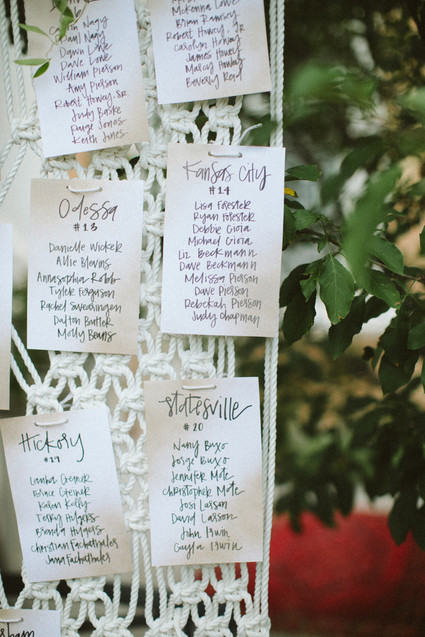 Nagy
Nagy
Dawn Lowe
Dave Lowe
William Pierson
Amy Pierson
Robert Howey, Sr.
Judy Baske
Paige Jones
Keith Jones
McKenna Lowe
Brian Ramsey
Robert Howey, Jr
Carolyn Howey
James Howey
Marcy Howey
Beverly Reed
Odessa
#13
Danielle Wicker
Allie Blevins
Annasophia Robb
Tyler Ferguson
Rachel Swearingen
Dalton Butler
Molly Beans
Kansas City
#14
Lisa Forester
Ryan Forester
Debbie Gioia
Michael Gioia
Liz Beckmann
Dave Beckmann
Melissa Pierson
Dave Pierson
Rebekah Pierson
Judy Chapman
Hickory
#19
Karen Kelly
Terry Hulgers
Brenda Hulgers
Christian Fachethaler
Jana Fachethaler
Statesville
#20
Nancy Buxo
Jorge Buxo
Jennifer Mote
Christopher Mote
Josi Larson
David Larson
John Irwin
Gayla Irwin